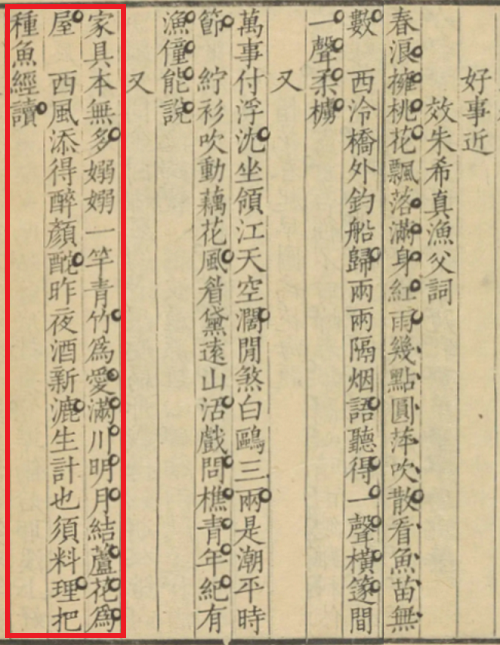 好事近
效朱希真漁父詞
春浪擁桃花飄落滿身紅雨幾點圓萍吹散看魚苗無
數　西泠橋外釣船歸兩兩隔烟語聽得一聲橫篴間
一聲柔櫓
又
萬事付浮沈坐領江天空濶閒煞白鷗三兩是潮平時
節　紵衫吹動藕花風眉黛遠山活戲問樵青年紀有
漁僮能說
又
家具本無多嫋嫋一竿青竹爲愛滿川明月結蘆花爲
屋　西風添得醉顏酡昨夜酒新漉生計也須料理把
種魚經讀